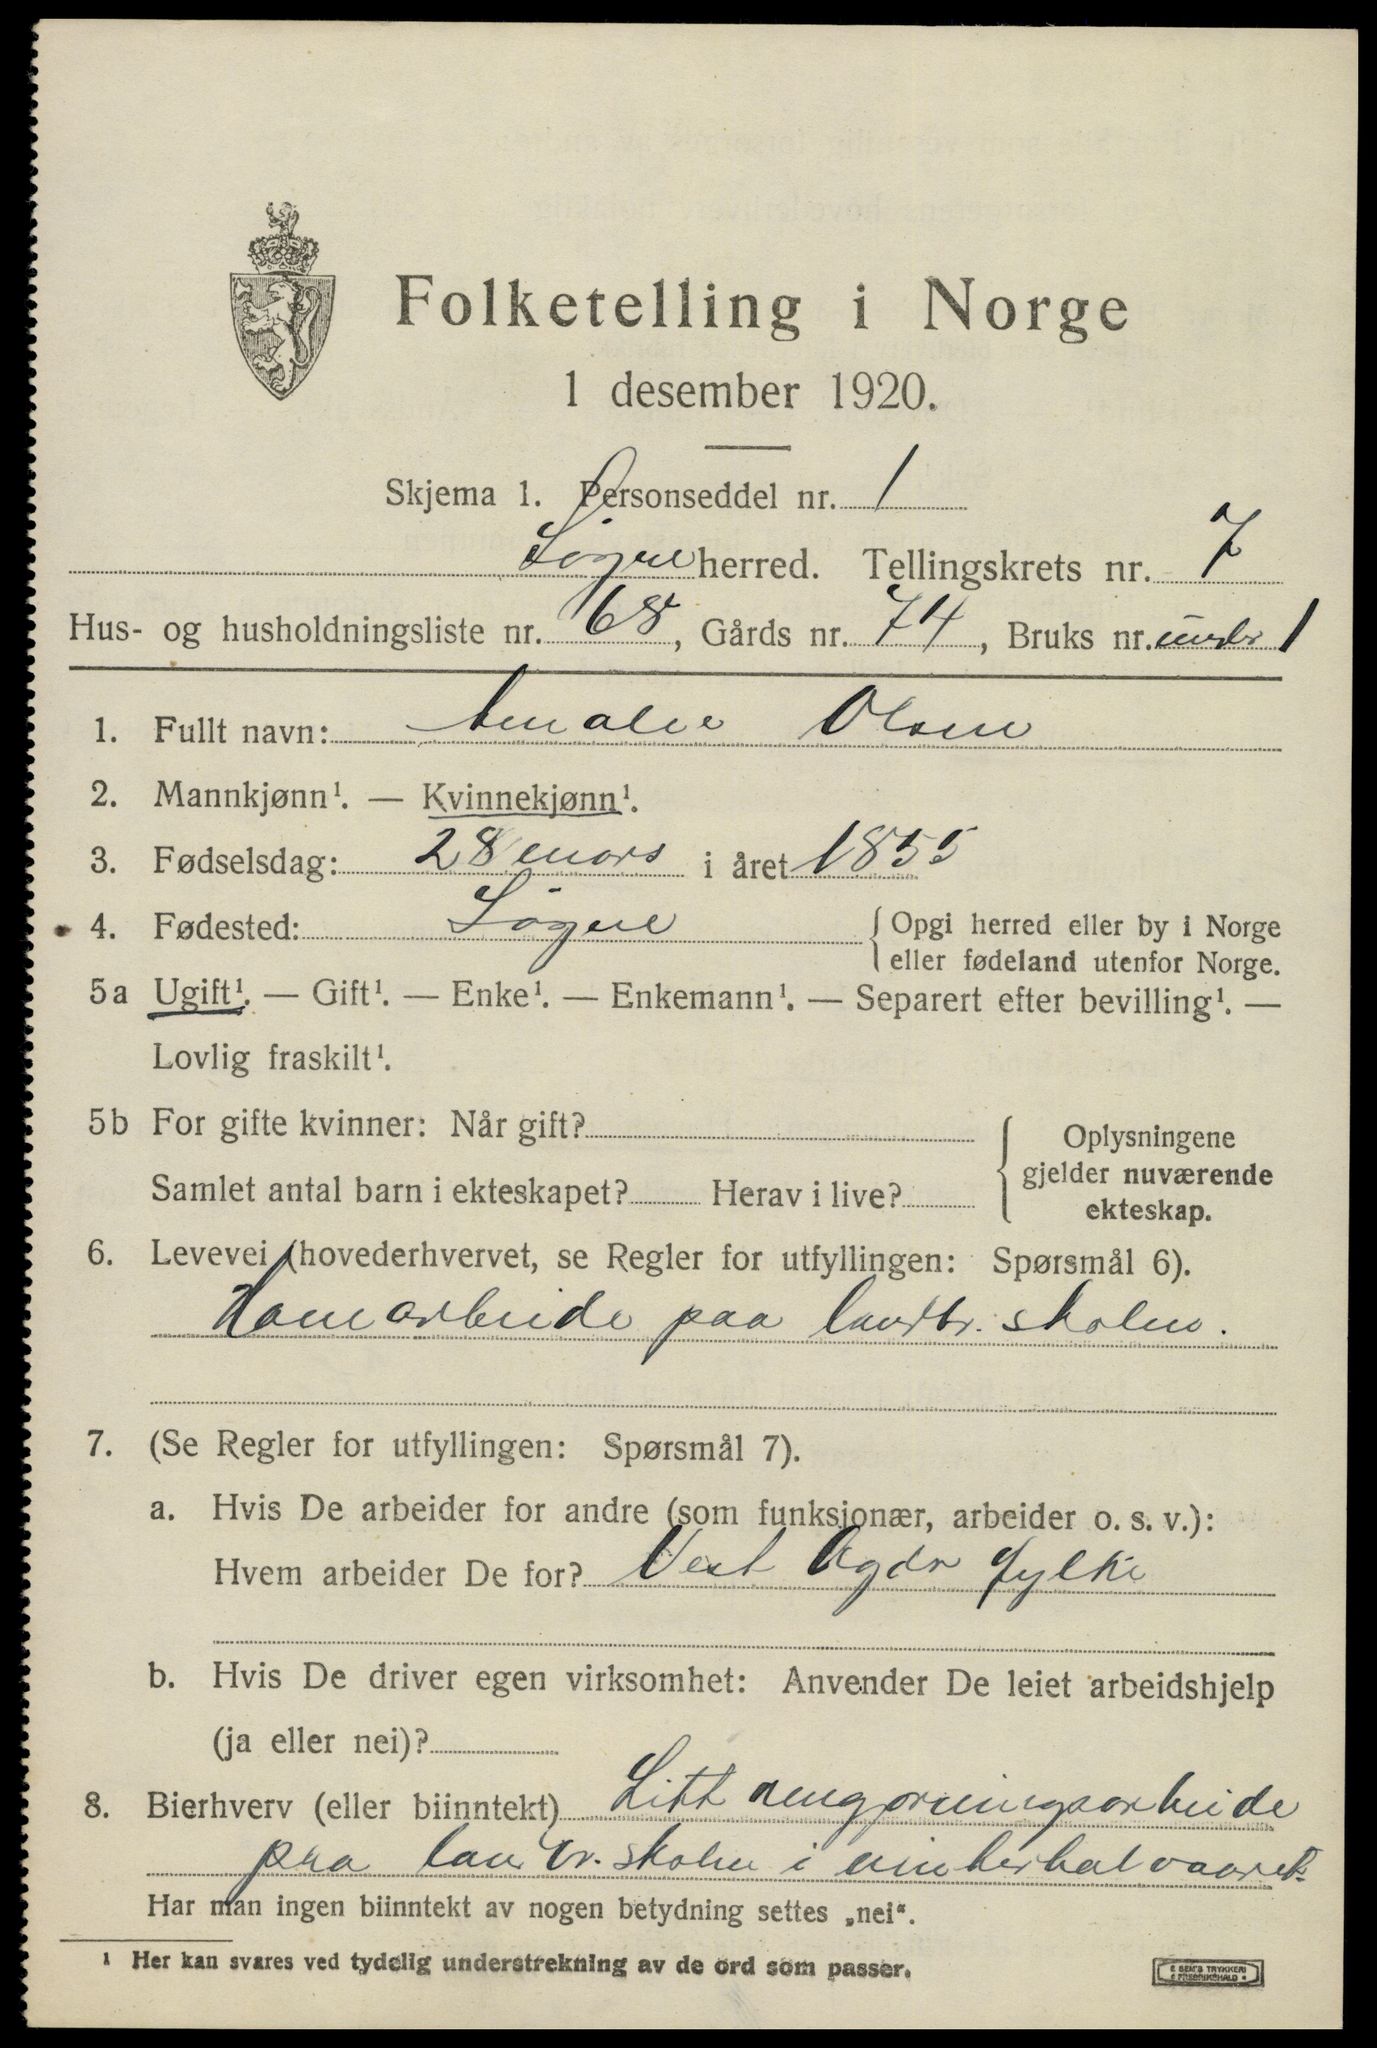 Folketelling i Norge
1 desember 1920.
Skjema 1. Personseddel nr. 1
Søgne herred. Tellingskrets nr. 7
Hus- og husholdningsliste nr. 68, Gårds nr. 74, Bruks nr. under 1
1. Fullt navn: Amalie Olsen
2. Mannkjønn¹. — Kvinnekjønn¹.
3. Fødselsdag: 28 mars i året 1855
4. Fødested: Søgne { Opgi herred eller by i Norge
eller fødeland utenfor Norge.
5a Ugift¹. — Gift¹. — Enke¹. — Enkemann¹. — Separert efter bevilling¹. —
Lovlig fraskilt¹.
5b For gifte kvinner: Når gift?
Samlet antal barn i ekteskapet? Herav i live?
{ Oplysningene
gjelder nuværende
ekteskap.
6. Levevei (hovederhvervet, se Regler for utfyllingen: Spørsmål 6).
arbeide paa landbr. skolen.
7. (Se Regler for utfyllingen: Spørsmål 7).
a. Hvis De arbeider for andre (som funksjonær, arbeider o. s. v.):
Hvem arbeider De for? Vest Agder fylke
b. Hvis De driver egen virksomhet: Anvender De leiet arbeidshjelp
(ja eller nei)?
8. Bierhverv (eller biinntekt) Litt rengjøringsarbeide
paa landbr. skolen i vinterhalvaaret.
Har man ingen biinntekt av nogen betydning settes „nei“.
¹ Her kan svares ved tydelig understrekning av de ord som passer.
E SEM'S TRYKKERI
FREDRIKSHALD